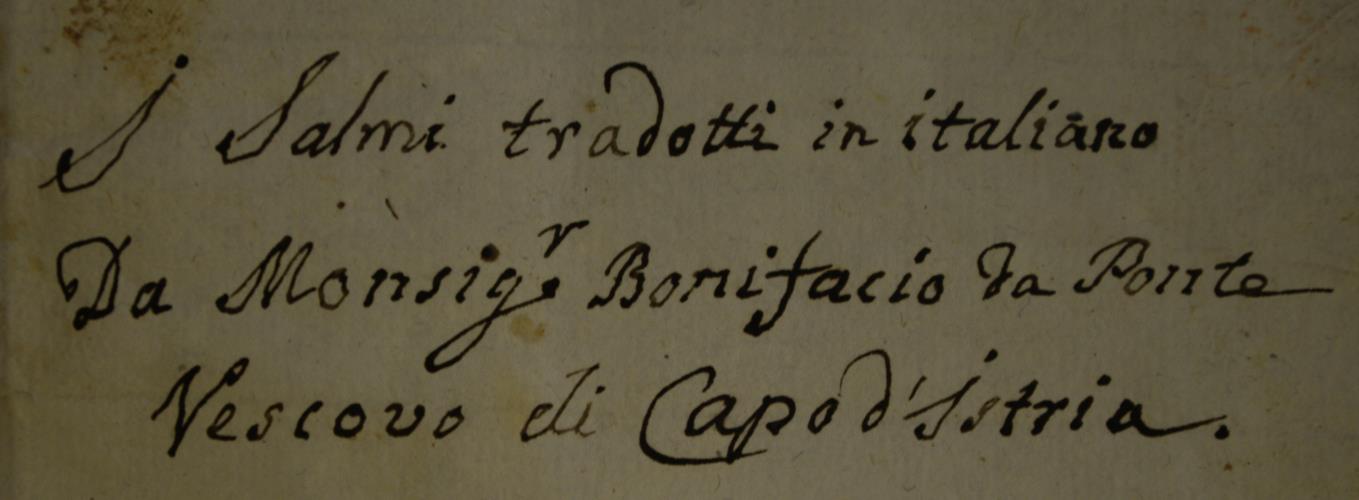 I Salmi tradotti in italiano
Da Monsig.r Bonifacio da Ponte
Vescovo di Capo d'Istria.